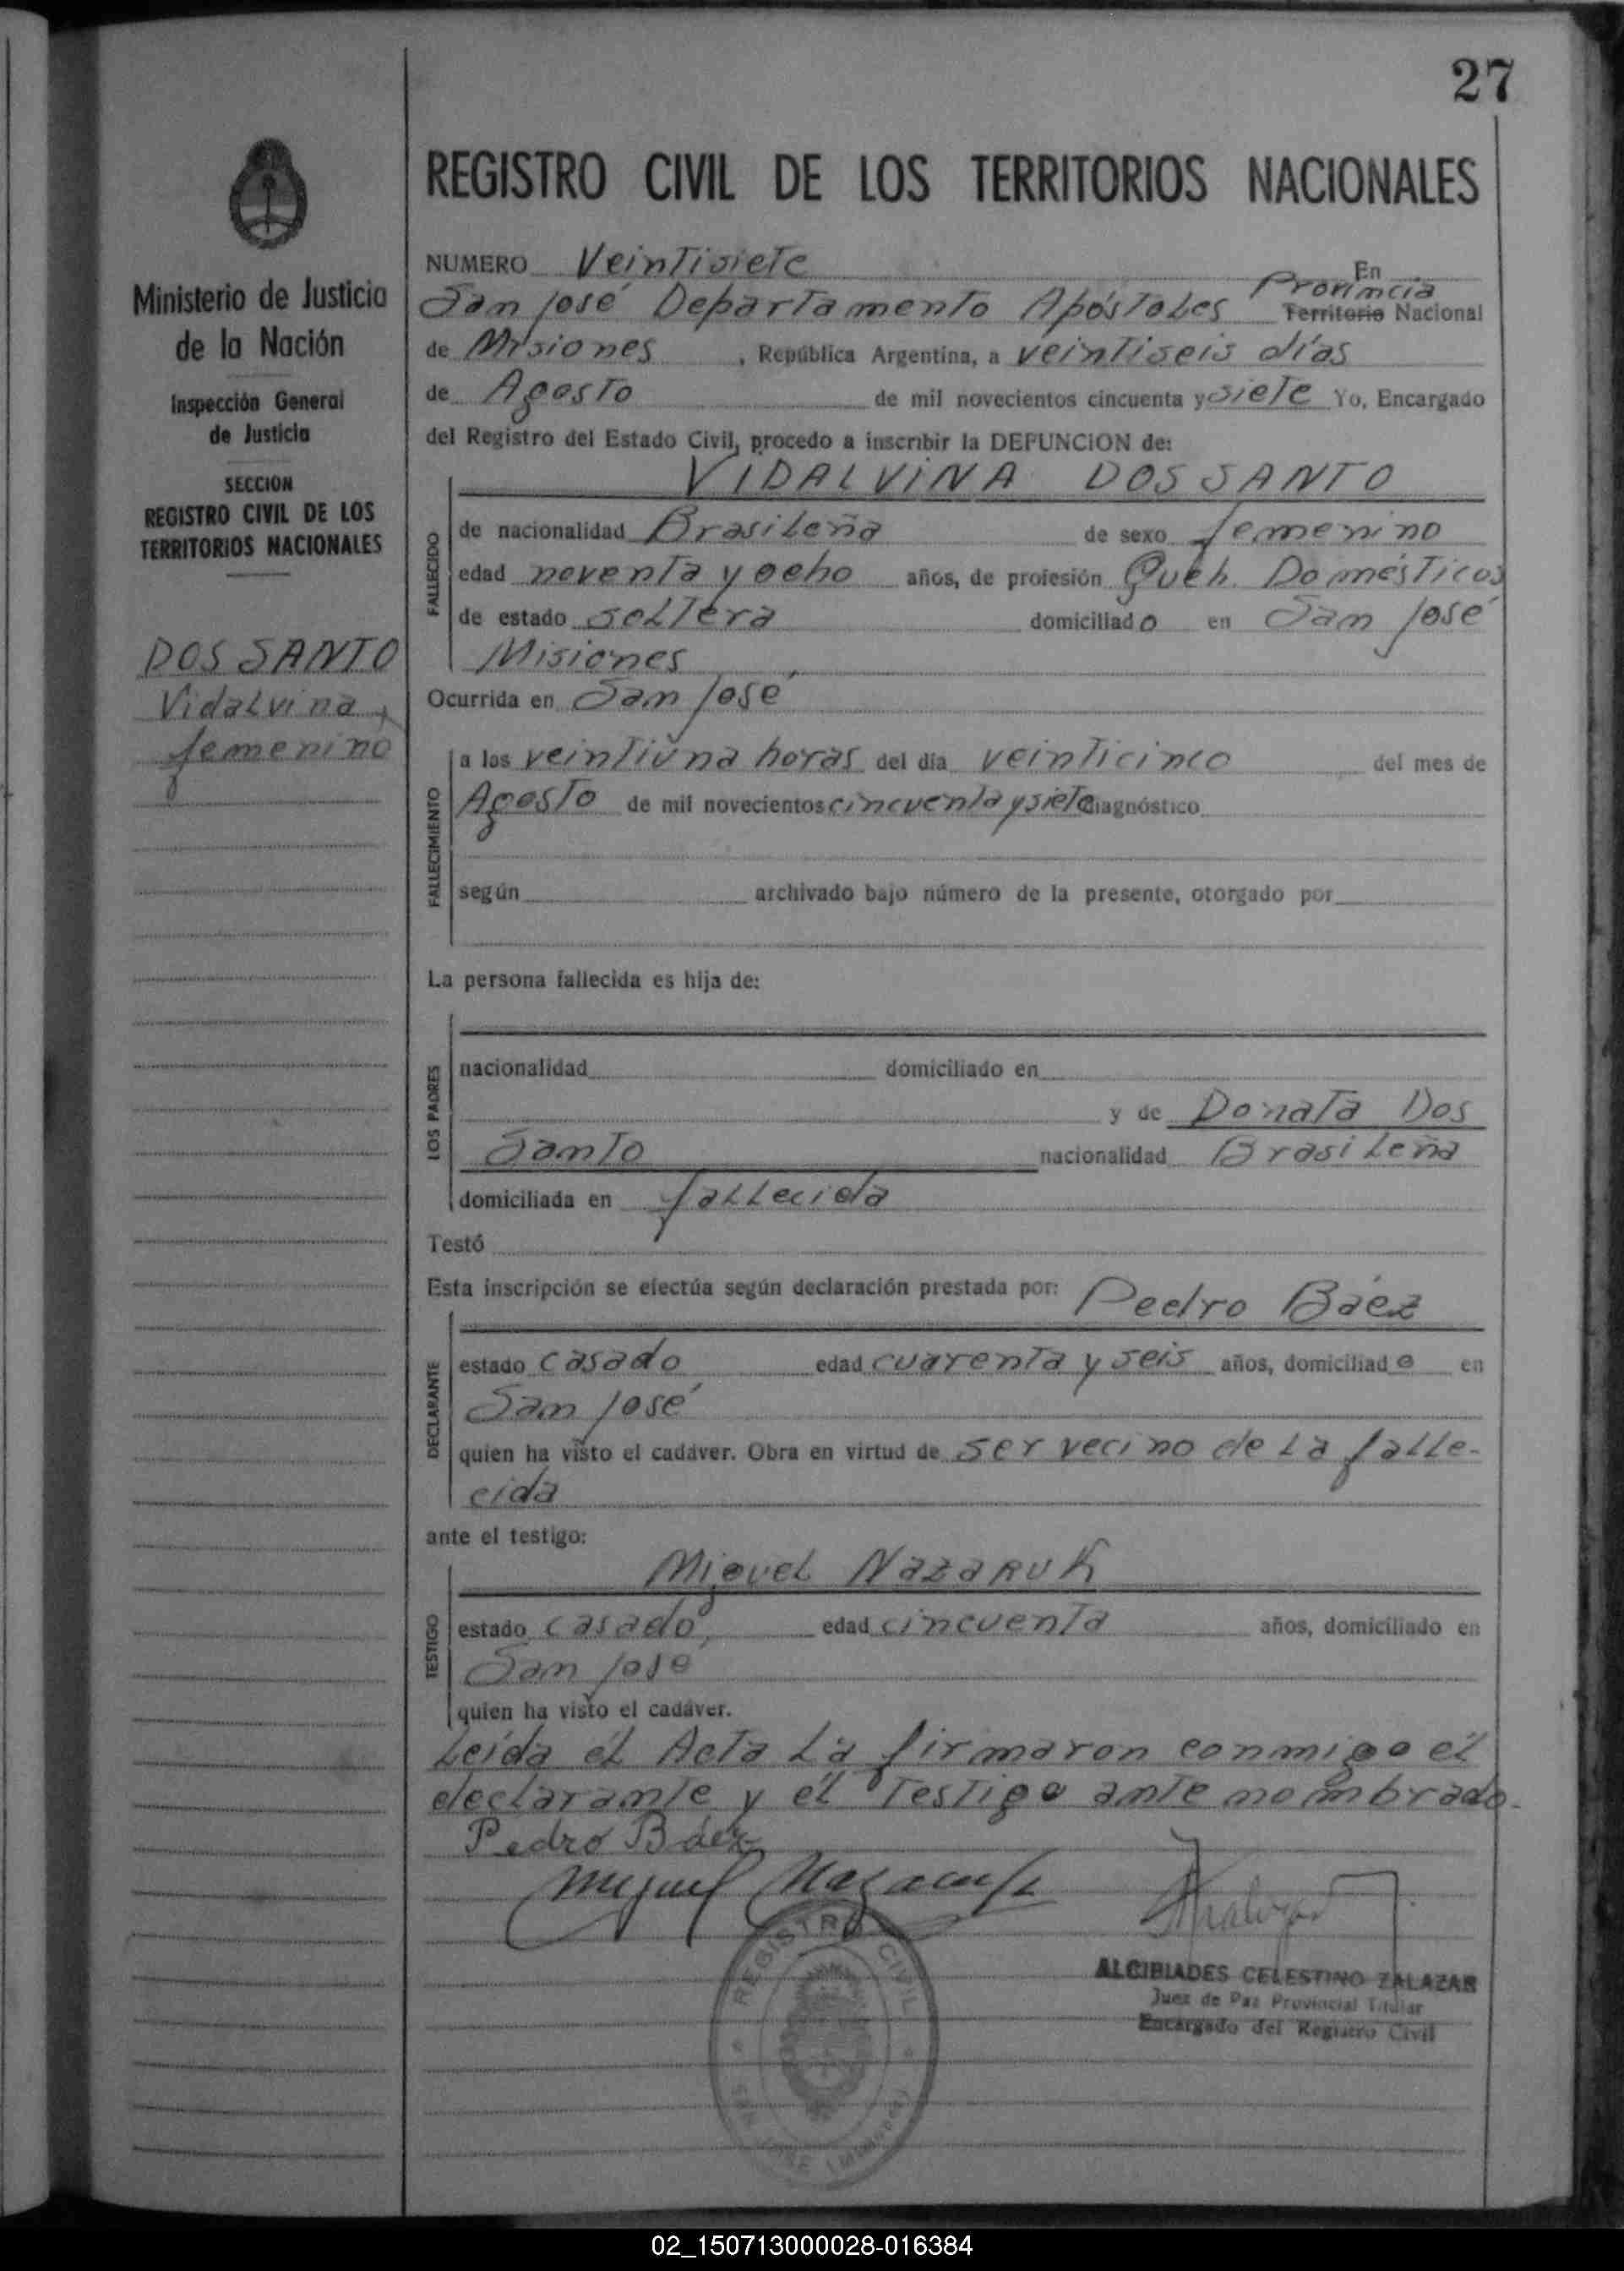 27
REGISTRO CIVIL DE LOS TERRITORIOS NACIONALES
Ministerio de Justicia
de la Nación
Inspección General
de Justicia
SECCION
REGISTRO CIVIL DE LOS
TERRITORIOS NACIONALES
DOS SANTO
Vidalvina,
femenino
NUMERO Veintisiete En
San José Departamento Apóstoles Provincia Territorio Nacional
de Misiones, República Argentina, a veintiseis días
de Agosto de mil novecientos cincuenta y siete Yo, Encargado
del Registro del Estado Civil, procedo a inscribir la DEFUNCION de:
VIDALVINA DOS SANTO
FALLECIDO
de nacionalidad Brasileña de sexo femenino
edad noventa y ocho años, de profesión Queh. Domésticos
de estado soltera domiciliado en San José
Misiones
Ocurrida en San José
FALLECIMIENTO
a las veintiuna horas del día veinticinco del mes de
Agosto de mil novecientos cincuenta y siete diagnóstico
según archivado bajo número de la presente, otorgado por
La persona fallecida es hija de:
LOS PADRES
nacionalidad domiciliado en
y de Donata Dos
Santo nacionalidad Brasileña
domiciliada en fallecida
Testó
Esta inscripción se efectúa según declaración prestada por: Pedro Báez
DECLARANTE
estado casado edad cuarenta y seis años, domiciliado en
San José
quien ha visto el cadáver. Obra en virtud de ser vecino de la falle-
cida
ante el testigo:
Miguel NazaRuk
TESTIGO
estado casado, edad cincuenta años, domiciliado en
San José
quien ha visto el cadáver.
Leída él Acta la firmaron conmigo él
declarante y él Testigo ante nombrado-
Pedro Báez
Miguel Nazaruk
REGISTRO CIVIL
SAN JOSE (Misiones)
ALCIBIADES CELESTINO ZALAZAR
Juez de Paz Provincial Titular
Encargado del Registro Civil
02_150713000028-016384